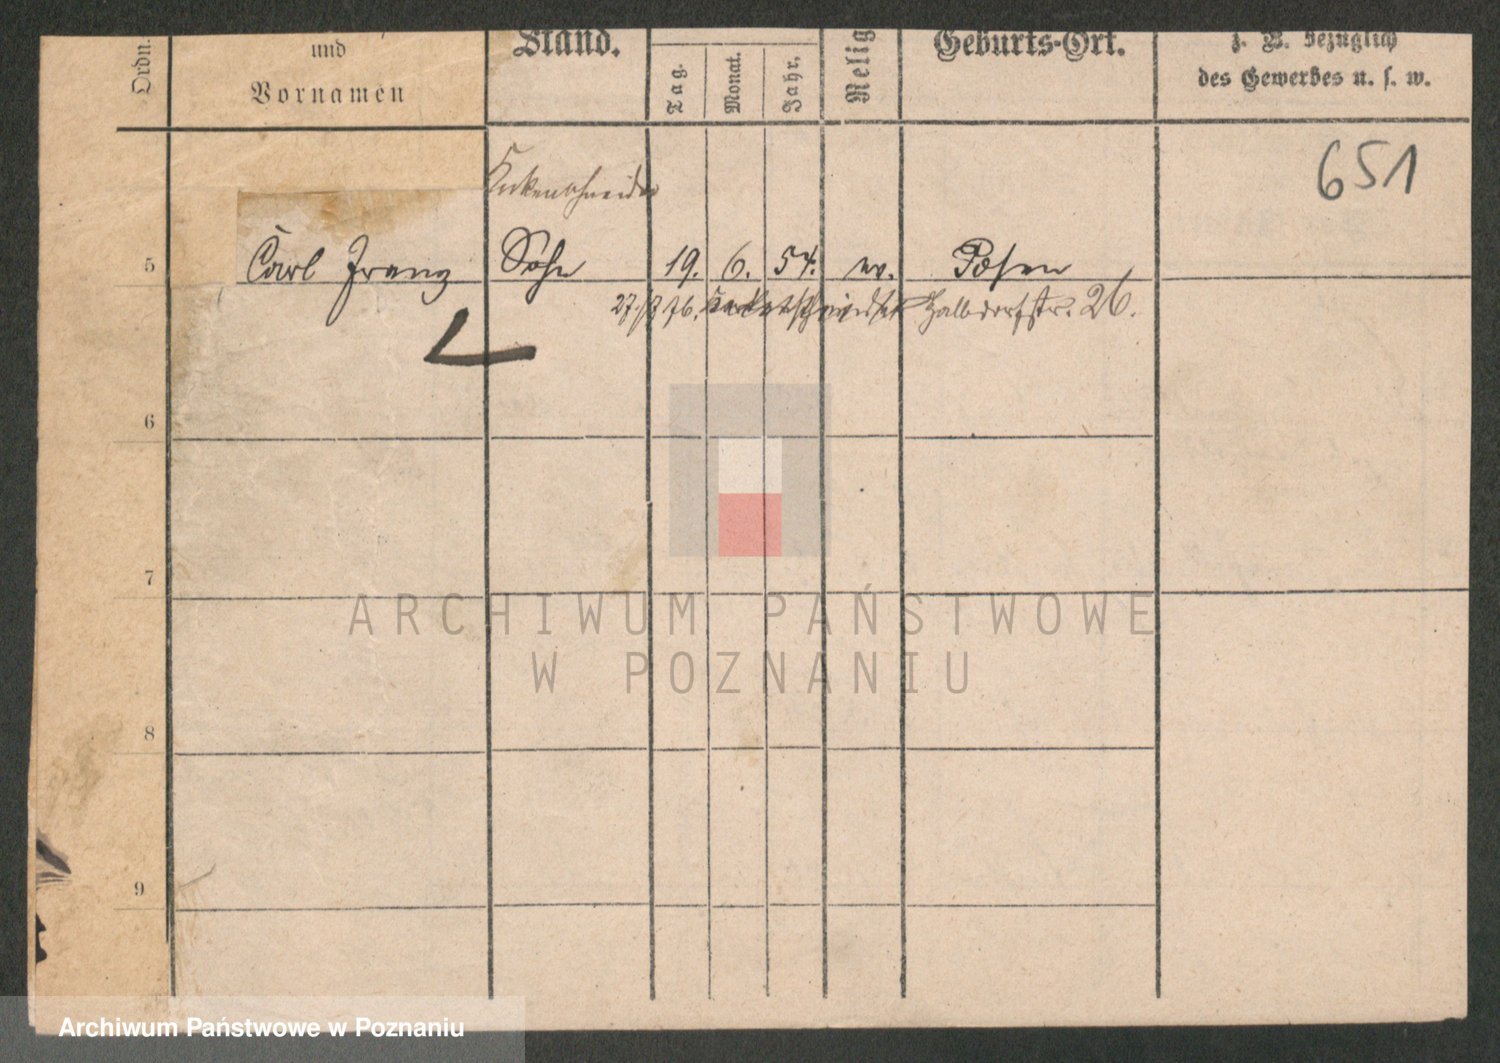 Ordn.
und
Vornamen
Stand.
Tag.
Monat.
Jahr.
Relig
Geburts-Ort.
z. B. bezüglich
des Gewerbes u. s. w.
651
5 Carl Franz Sohn 19. 6. 54. ev. Posen
27/7 76. Halbdorfstr. 26.
6
7
8
9
ARCHIWUM PAŃSTWOWE
W POZNANIU
Archiwum Państwowe w Poznaniu